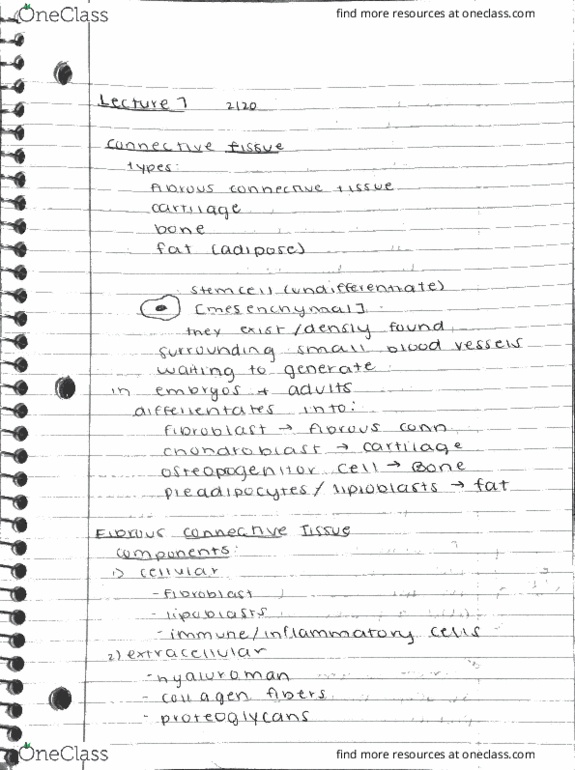 OneClass
find more resources at oneclass.com
Lecture 7 2/20
connective tissue
types:
fibrous connective tissue
cartilage
bone
fat (adipose)
stemcell (undifferentrate)
[mesenchymal]
they exist/densly found
surrounding small blood vessels
waiting to generate
in embryos + adults
differentates into:
fibroblast → fibrous conn.
chondroblast → cartilage
osteopogenitor cell → Bone
preadipocytes/lipioblasts → fat
Fibrous connective Tissue
components:
1) cellular
- fibroblast
- lipoblasts
- immune/inflammatory cells
2) extracellular
- hyaluronan
- collagen fibers
- proteoglycans
OneClass
find more resources at oneclass.com